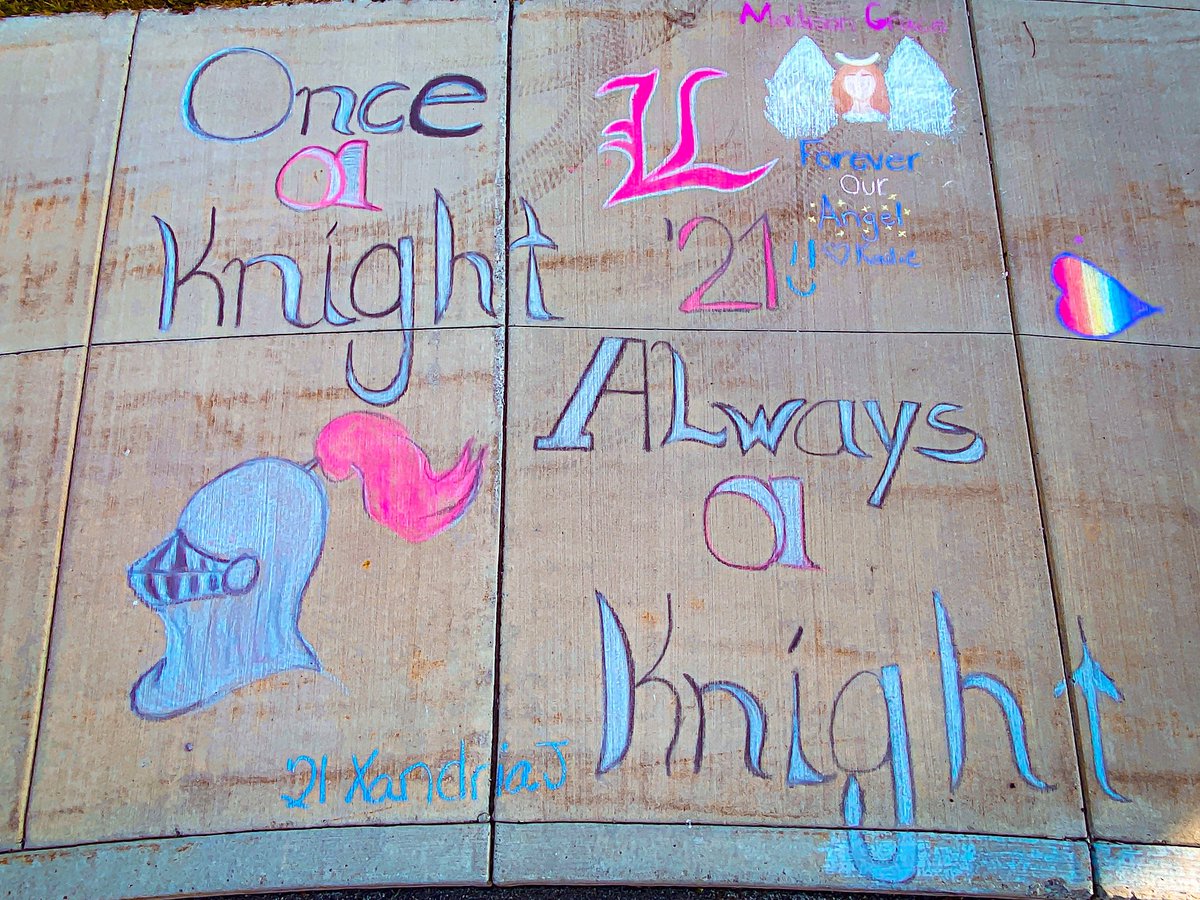 Once
a
Knight
Madison Grace
L
'21
Forever
Our
Angel
Kadie
Always
a
Knight
'21 Xandria J